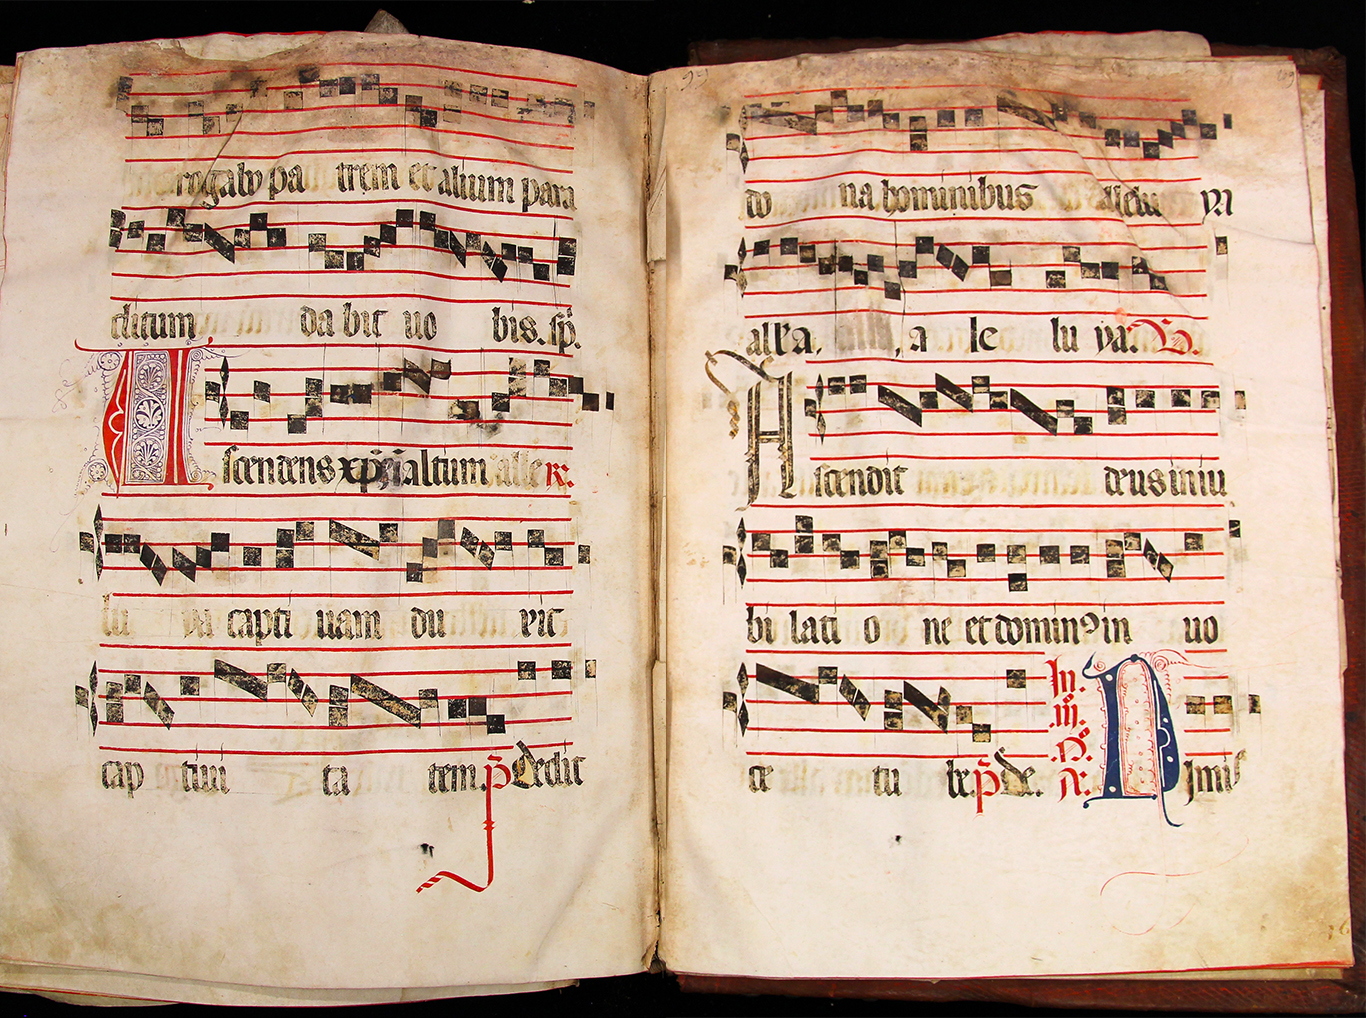 rogabo pa trem et alium para
clitum da bit uo bis. sp̄.
Ascendens xp̄s ī altum alle ℟.
lu ya capti uam du xit
cap tiui ta tem. p̄ Dedit
do na hominibus allelu ya
alleā, a le lu ya. ℣.
Ascendit deus in iu
bi lati o ne et domin⁹ in uo
In.
iij.
ce tu be. p̄ De. ℟. Nimis